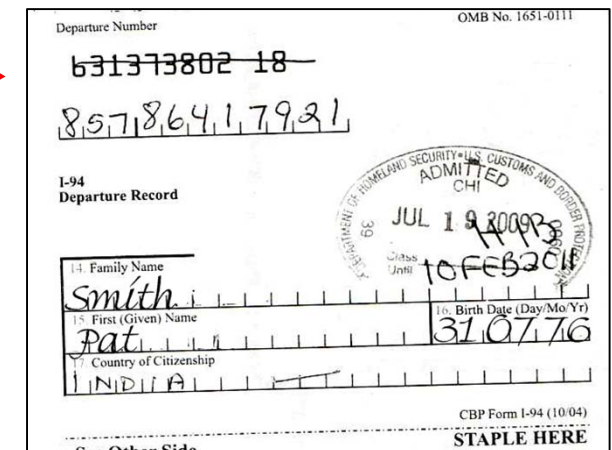 Departure Number
OMB No. 1651-0111
631373802 18
85786417921
I-94
Departure Record
DEPARTMENT OF HOMELAND SECURITY • U.S. CUSTOMS AND BORDER PROTECTION
ADMITTED
CHI
39
JUL 19 2009
Class H1B
Until 10 FEB 2011
14. Family Name
Smith
15. First (Given) Name
16. Birth Date (Day/Mo/Yr)
Pat
31 07 76
17. Country of Citizenship
INDIA
CBP Form I-94 (10/04)
See Other Side
STAPLE HERE